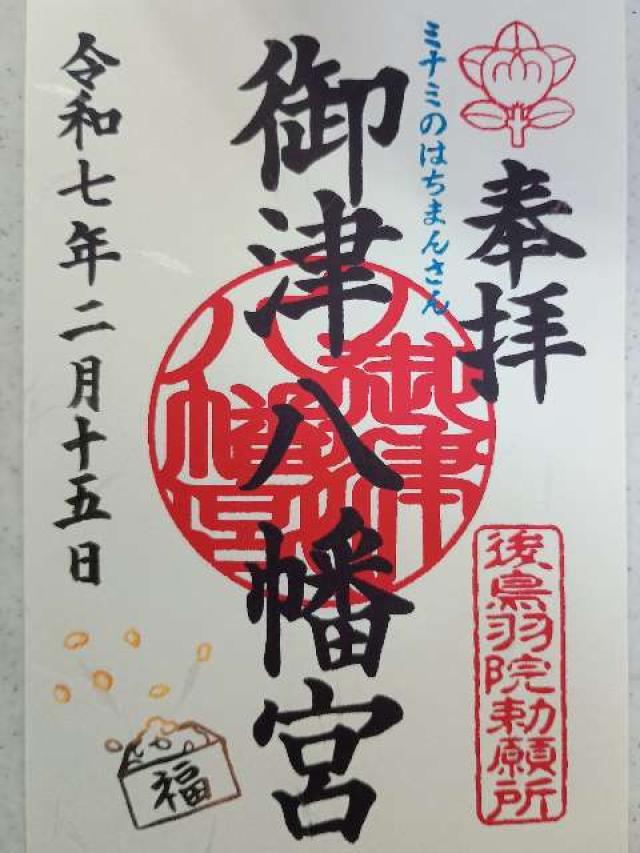 奉拝
後鳥羽院勅願所
ミナミのはちまんさん
御津八幡宮
御津八幡宮
令和七年二月十五日
福